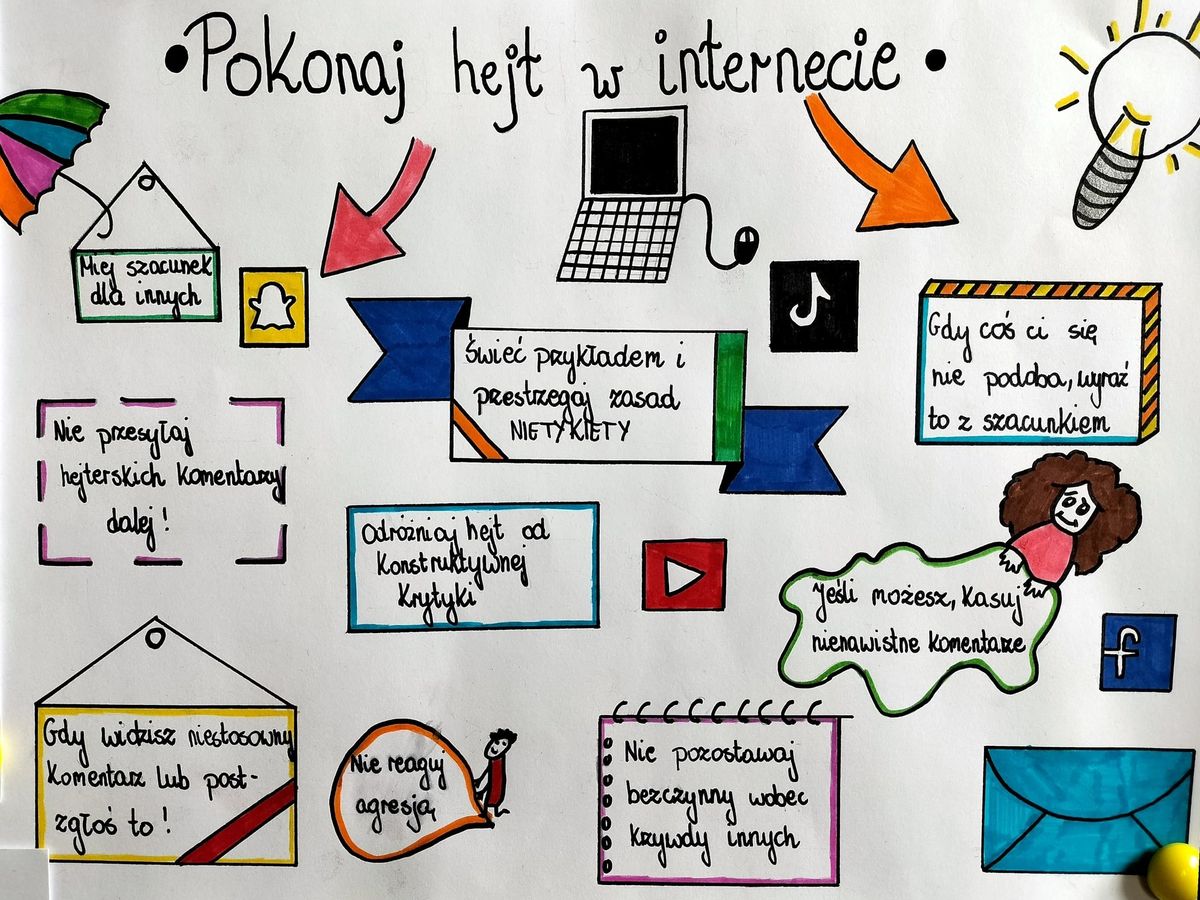 • Pokonaj hejt w internecie •
Miej szacunek
dla innych
Świeć przykładem i
przestrzegaj zasad
NIETYKIETY
Gdy coś ci się
nie podoba, wyraź
to z szacunkiem
Nie przesyłaj
hejterskich komentarzy
dalej!
Odróżniaj hejt od
konstruktywnej
krytyki
Jeśli możesz, kasuj
nienawistne komentarze
f
Gdy widzisz niestosowny
komentarz lub post-
zgłoś to!
Nie reaguj
agresją
Nie pozostawaj
bezczynny wobec
krzywdy innych